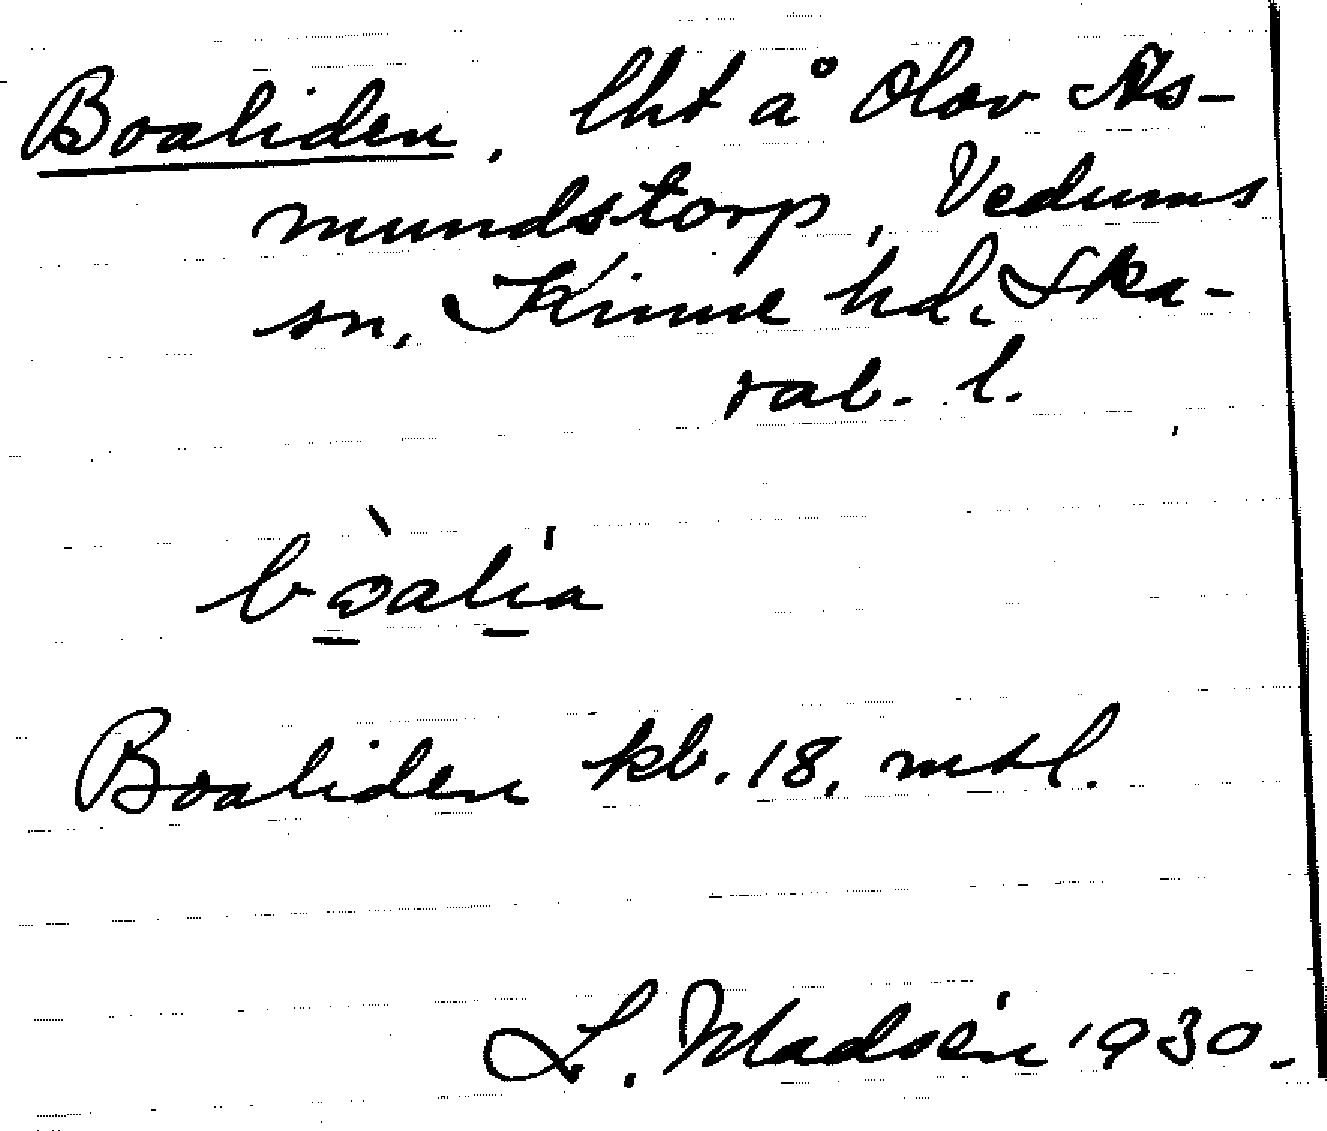 Boaliden, lht å Olov As-
mundstorp, Vedums
sn, Kinne hd. Ska-
rab. l.
bòalía
Boaliden kb. 18, mtl.
L. Madsén 1930.